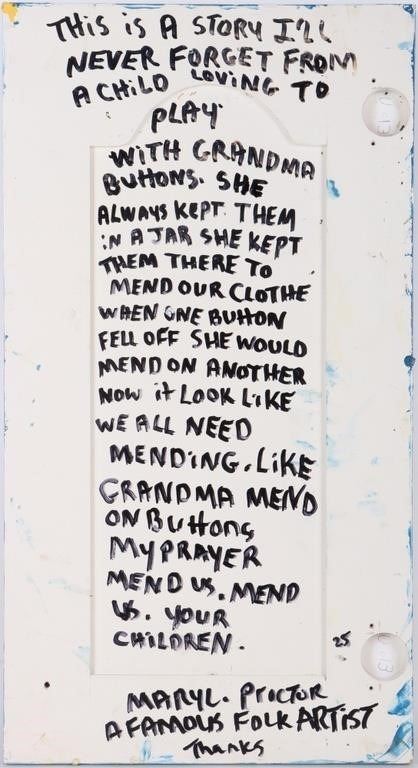 THIS IS A STORY I'LL
NEVER FORGET FROM
A CHILD LOVING TO
PLAY
WITH GRANDMA
BUTTONS. SHE
ALWAYS KEPT THEM
IN A JAR SHE KEPT
THEM THERE TO
MEND OUR CLOTHE
WHEN ONE BUTTON
FELL OFF SHE WOULD
MEND ON ANOTHER
NOW it LOOK LIKE
WE ALL NEED
MENDING. LIKE
GRANDMA MEND
ON BUttONS
MY PRAYER
MEND US. MEND
US. YOUR
CHILDREN.
25
MARYL. PROCTOR
A FAMOUS FOLK ARTIST
THANKS